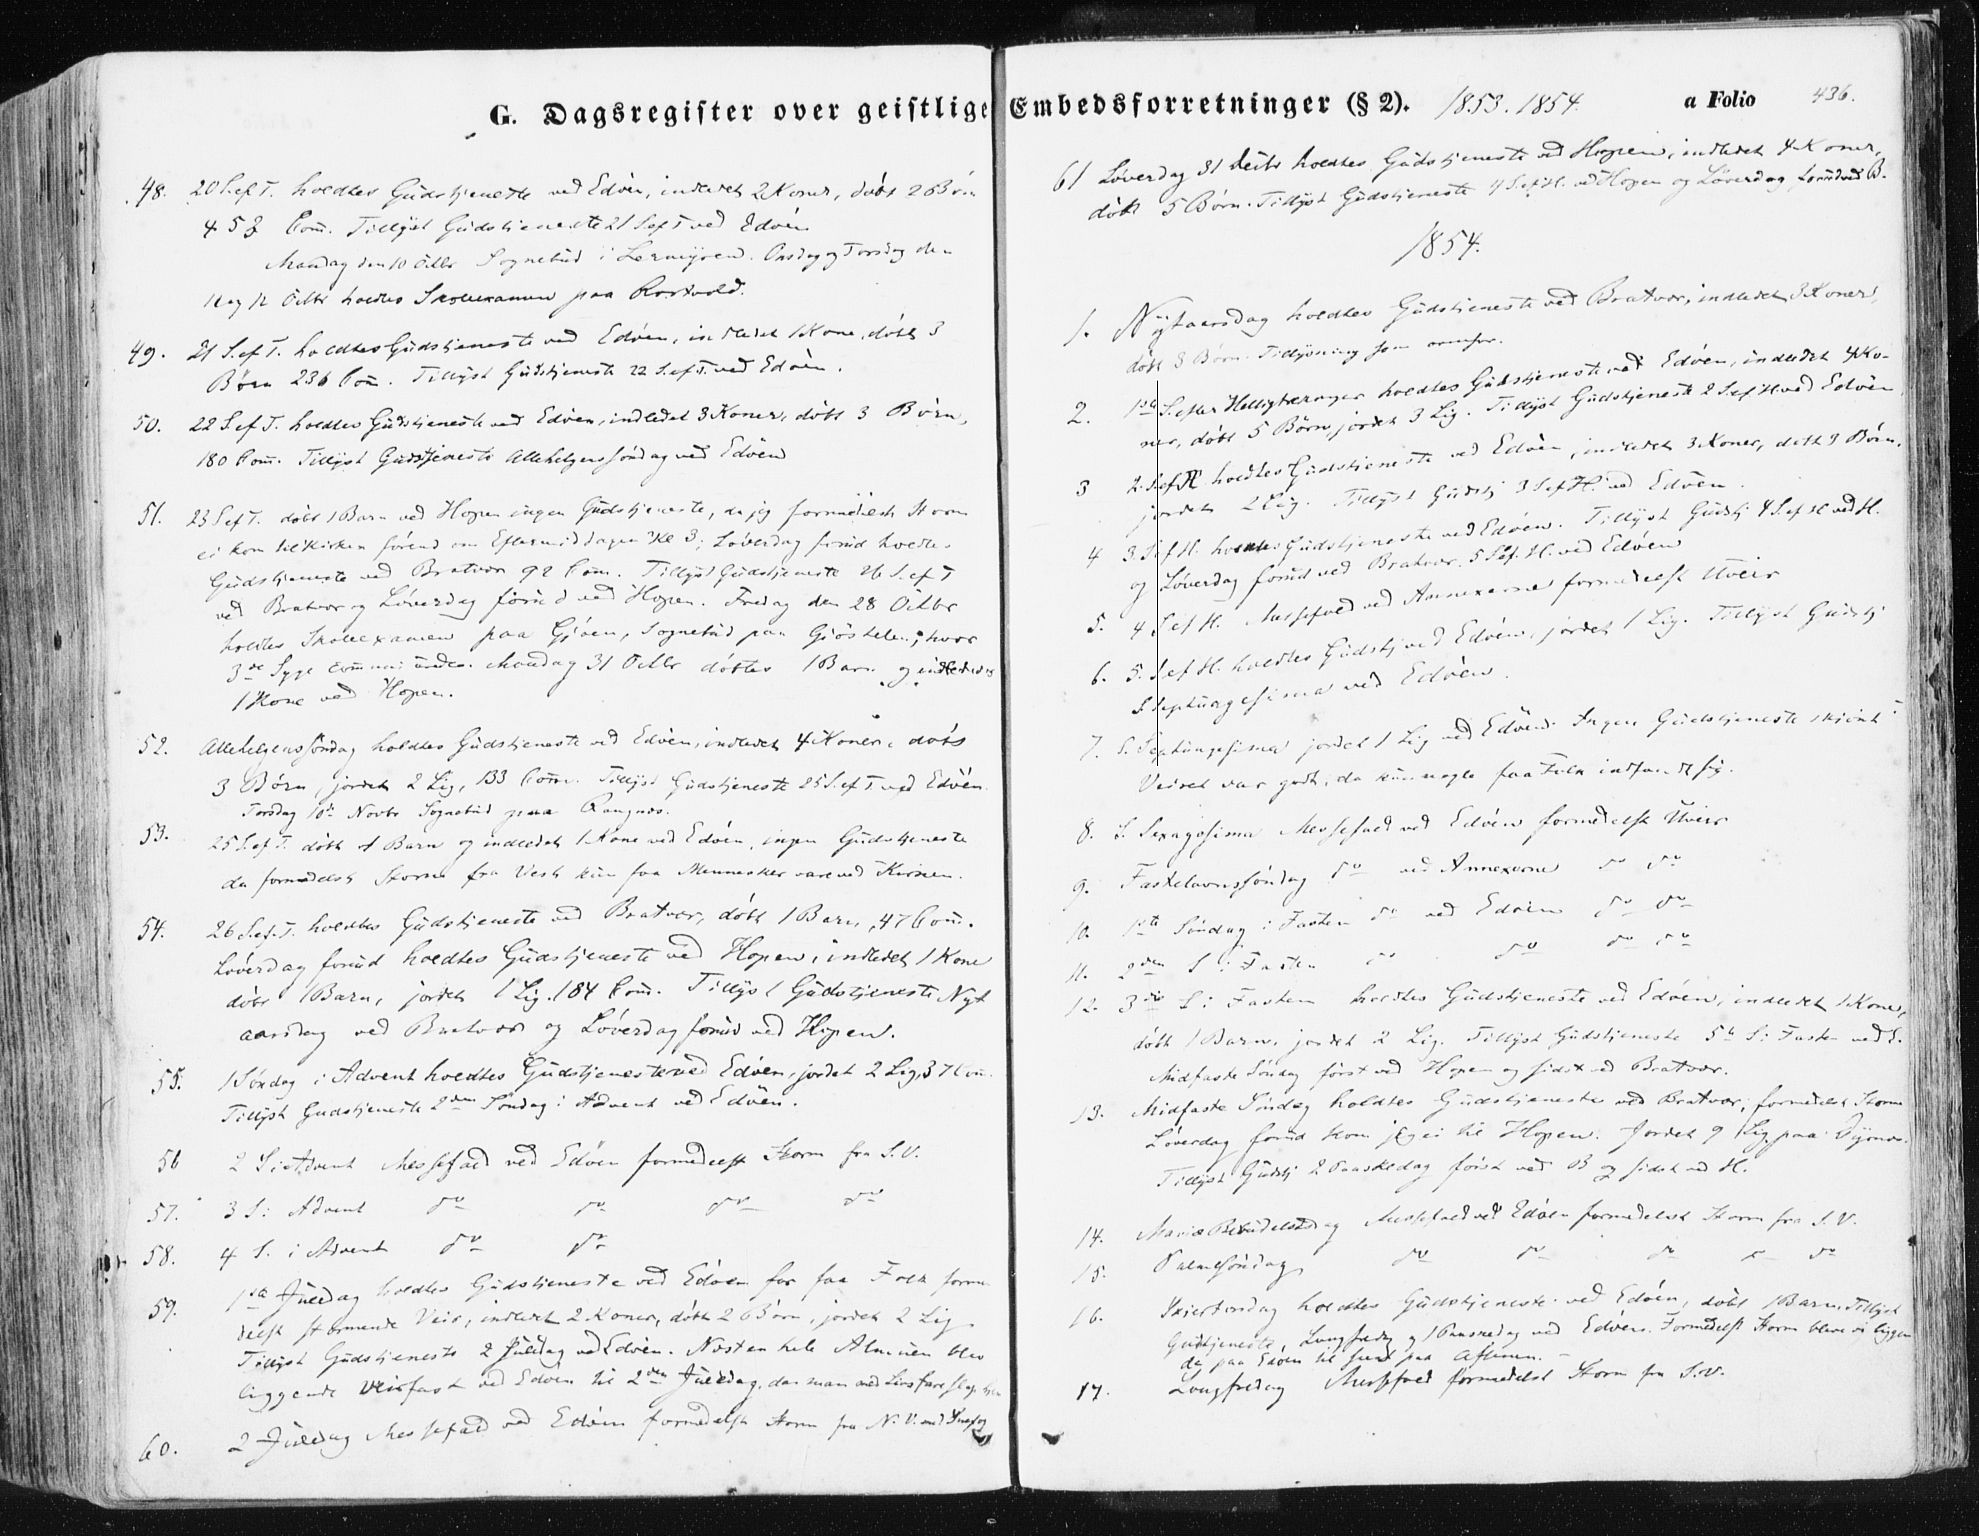 G. Dagsregister over geistlige Embedsforretninger (§ 2). 1853. 1854. a Folio 436.
48. 20 S. ef T. holdtes Gudstjeneste ved Edöen, indledet 2 Koner, döbt 2 Börn
Com. Tillyst Gudstjeneste 21 S ef T ved Edöen
Mandag den 10 Octbr Sognebud i Leermyren. Onsdag og Torsdag den
og 12 Octbr holdtes Skoleexamen paa Rostvold.
49. 21 S. ef T. holdtes Gudstjeneste ved Edöen, indledet 1 Kone, döbt 3
Börn 236 Com. Tillyst Gudstjeneste 22 S. ef T. ved Edöen.
50. 22 S ef T. holdtes Gudstjeneste ved Edöen, indledet 3 Koner, döbt 3 Börn,
180 Com. Tillyst Gudstjeneste Allehelgenssöndag ved Edöen
51. 23 S ef T. döbt 1 Barn ved Hopen ingen Gudstjeneste, da jeg formedelst Storm
ei kom til Kirken förend om Eftermiddagen Kl 3; Löverdag forud holdtes
Gudstjeneste ved Bratvær 92 Com. Tillyst Gudstjeneste 26 S. ef T
ved Bratvær og Löverdag forud ved Hopen. Fredag den 28 Octbr
holdtes Skoleexamen paa Gjöen, Sognebud paa hvor
3de Syge Mandag 31 Octbr döbtes 1 Barn og indlededes
1 Kone ved Hopen.
52. Allehelgenssöndag holdtes Gudstjeneste ved Edöen, indledet 4 Koner, döbt
3 Börn, jordet 2 Lig, 133 Com. Tillyst Gudstjeneste 25 S. ef T. ved Edöen.
Torsdag 10de Novbr Sognebud paa
53. 25 S. ef T. döbt 1 Barn og indledet 1 Kone ved Edöen, ingen Gudstjeneste
da formedelst Storm fra Vest kun faa Mennesker vare ved Kirken.
54. 26 S. ef. T. holdtes Gudstjeneste ved Bratvær, döbt 1 Barn, 47 Com.
Löverdag forud holdtes Gudstjeneste ved Hopen, indledet 1 Kone
döbt 1 Barn, jordet 1 Lig. 184 Com. Tillyst Gudstjeneste Nyt
aarsdag ved Bratvær og Löverdag forud ved Hopen.
55. 1 Söndag i Advent holdtes Gudstjeneste ved Edöen, jordet 2 Lig, 37 Com.
Tillyst Gudstjeneste 2den Söndag i Advent ved Edöen.
56 2 S i Advent Messefald ved Edöen formedelst Storm fra S.V.
57. 3 S: Advent do do do do
58. 4 S. i Advent do do
59. 1ste Juledag holdtes Gudstjeneste ved Edöen for faa Folk forme
delst stormende Veir, indledet 2 Koner, döbt 2 Börn, jordet 2 Lig
Tillyst Gudstjeneste 2 Juledag ved Edöen. Næsten hele Almuen blev
liggende veirfast ved Edöen til 2den Juledag, da man med Livsfare
60. 2 Juledag Messefald ved Edöen formedelst Storm fra N.V. med
61 Löverdag 31 Decbr holdtes Gudstjeneste ved Hopen, indledet 4 Koner,
döbt 5 Börn. Tillyst Gudstjeneste 4 S. ef H. ved Hopen og Löverdag forud ved B.
1854.
1. Nytaarsdag holdtes Gudstjeneste ved Bratvær, indledet 3 Koner,
döbt 3 Börn. Tillysning som ovenfor.
2. 1ste S. efter Helligtrekonger holdtes Gudstjeneste ved Edöen, indledet 4 Ko-
ner, döbt 5 Börn, jordet 3 Lig. Tillyst Gudstjeneste 2 S. ef H ved Edöen
3 2. S. ef H. holdtes Gudstjeneste ved Edöen, indledet 3 Koner, döbt 3 Börn,
jordet 2 Lig. Tillyst Gudstj 3 S ef H. ved Edöen.
4 3 S ef H. holdtes Gudstjeneste ved Edöen. Tillyst Gudstj 4 S. ef H ved H.
og Löverdag forud ved Bratvær, 5 S ef. H. ved Edöen
5. 4 S ef H. Messefald ved Annexerne formedelst Uveir
6. 5. S ef H. holdtes Gudstj ved Edöen, jordet 1 Lig. Tillyst Gudstj
S. Septuagesima ved Edöen.
7. S. Septuagesima jordet 1 Lig ved Edöen. Ingen Gudstjeneste skjönt
Veiret var godt, da kun nogle faa Folk indfandt sig.
8. S. Sexagesima Messefald ved Edöen formedelst Uveir
9. Fastelavnssöndag do ved Annexerne do do
10. 1ste Söndag i Fasten do ved Edöen do do
11. 2den S i Fasten do do do do
12. 3die S: Fasten holdtes Gudstjeneste ved Edöen, indledet 1 Kone,
döbt 1 Barn, jordet 2 Lig. Tillyst Gudstjeneste 5te S i Fasten ved E.
Midfaste Söndag först ved Hopen og sidst ved Bratvær.
13. Midfaste Söndag holdtes Gudstjeneste ved Bratvær, formedelst Storm
Löverdag forud kom jeg ei til Hopen. Jordet 9 Lig paa
Tillyst Gudstj 2 Paaskedag först ved B og sidst ved H.
14. Mariæ Bebudelsesdag Messefald ved Edöen formedelst Storm fra S.V.
15. Palmesöndag do do do do
16. Skiertorsdag holdtes Gudstjeneste ved Edöen, döbt 1 Barn. Tillyst
Gudstjeneste Langfredag og 1 Paaskedag ved Edöen. Formedelst Storm bleve vi liggen
de paa Edöen til paa Aftenen.
17. Langfredag Messefald formedelst Storm fra S.V.